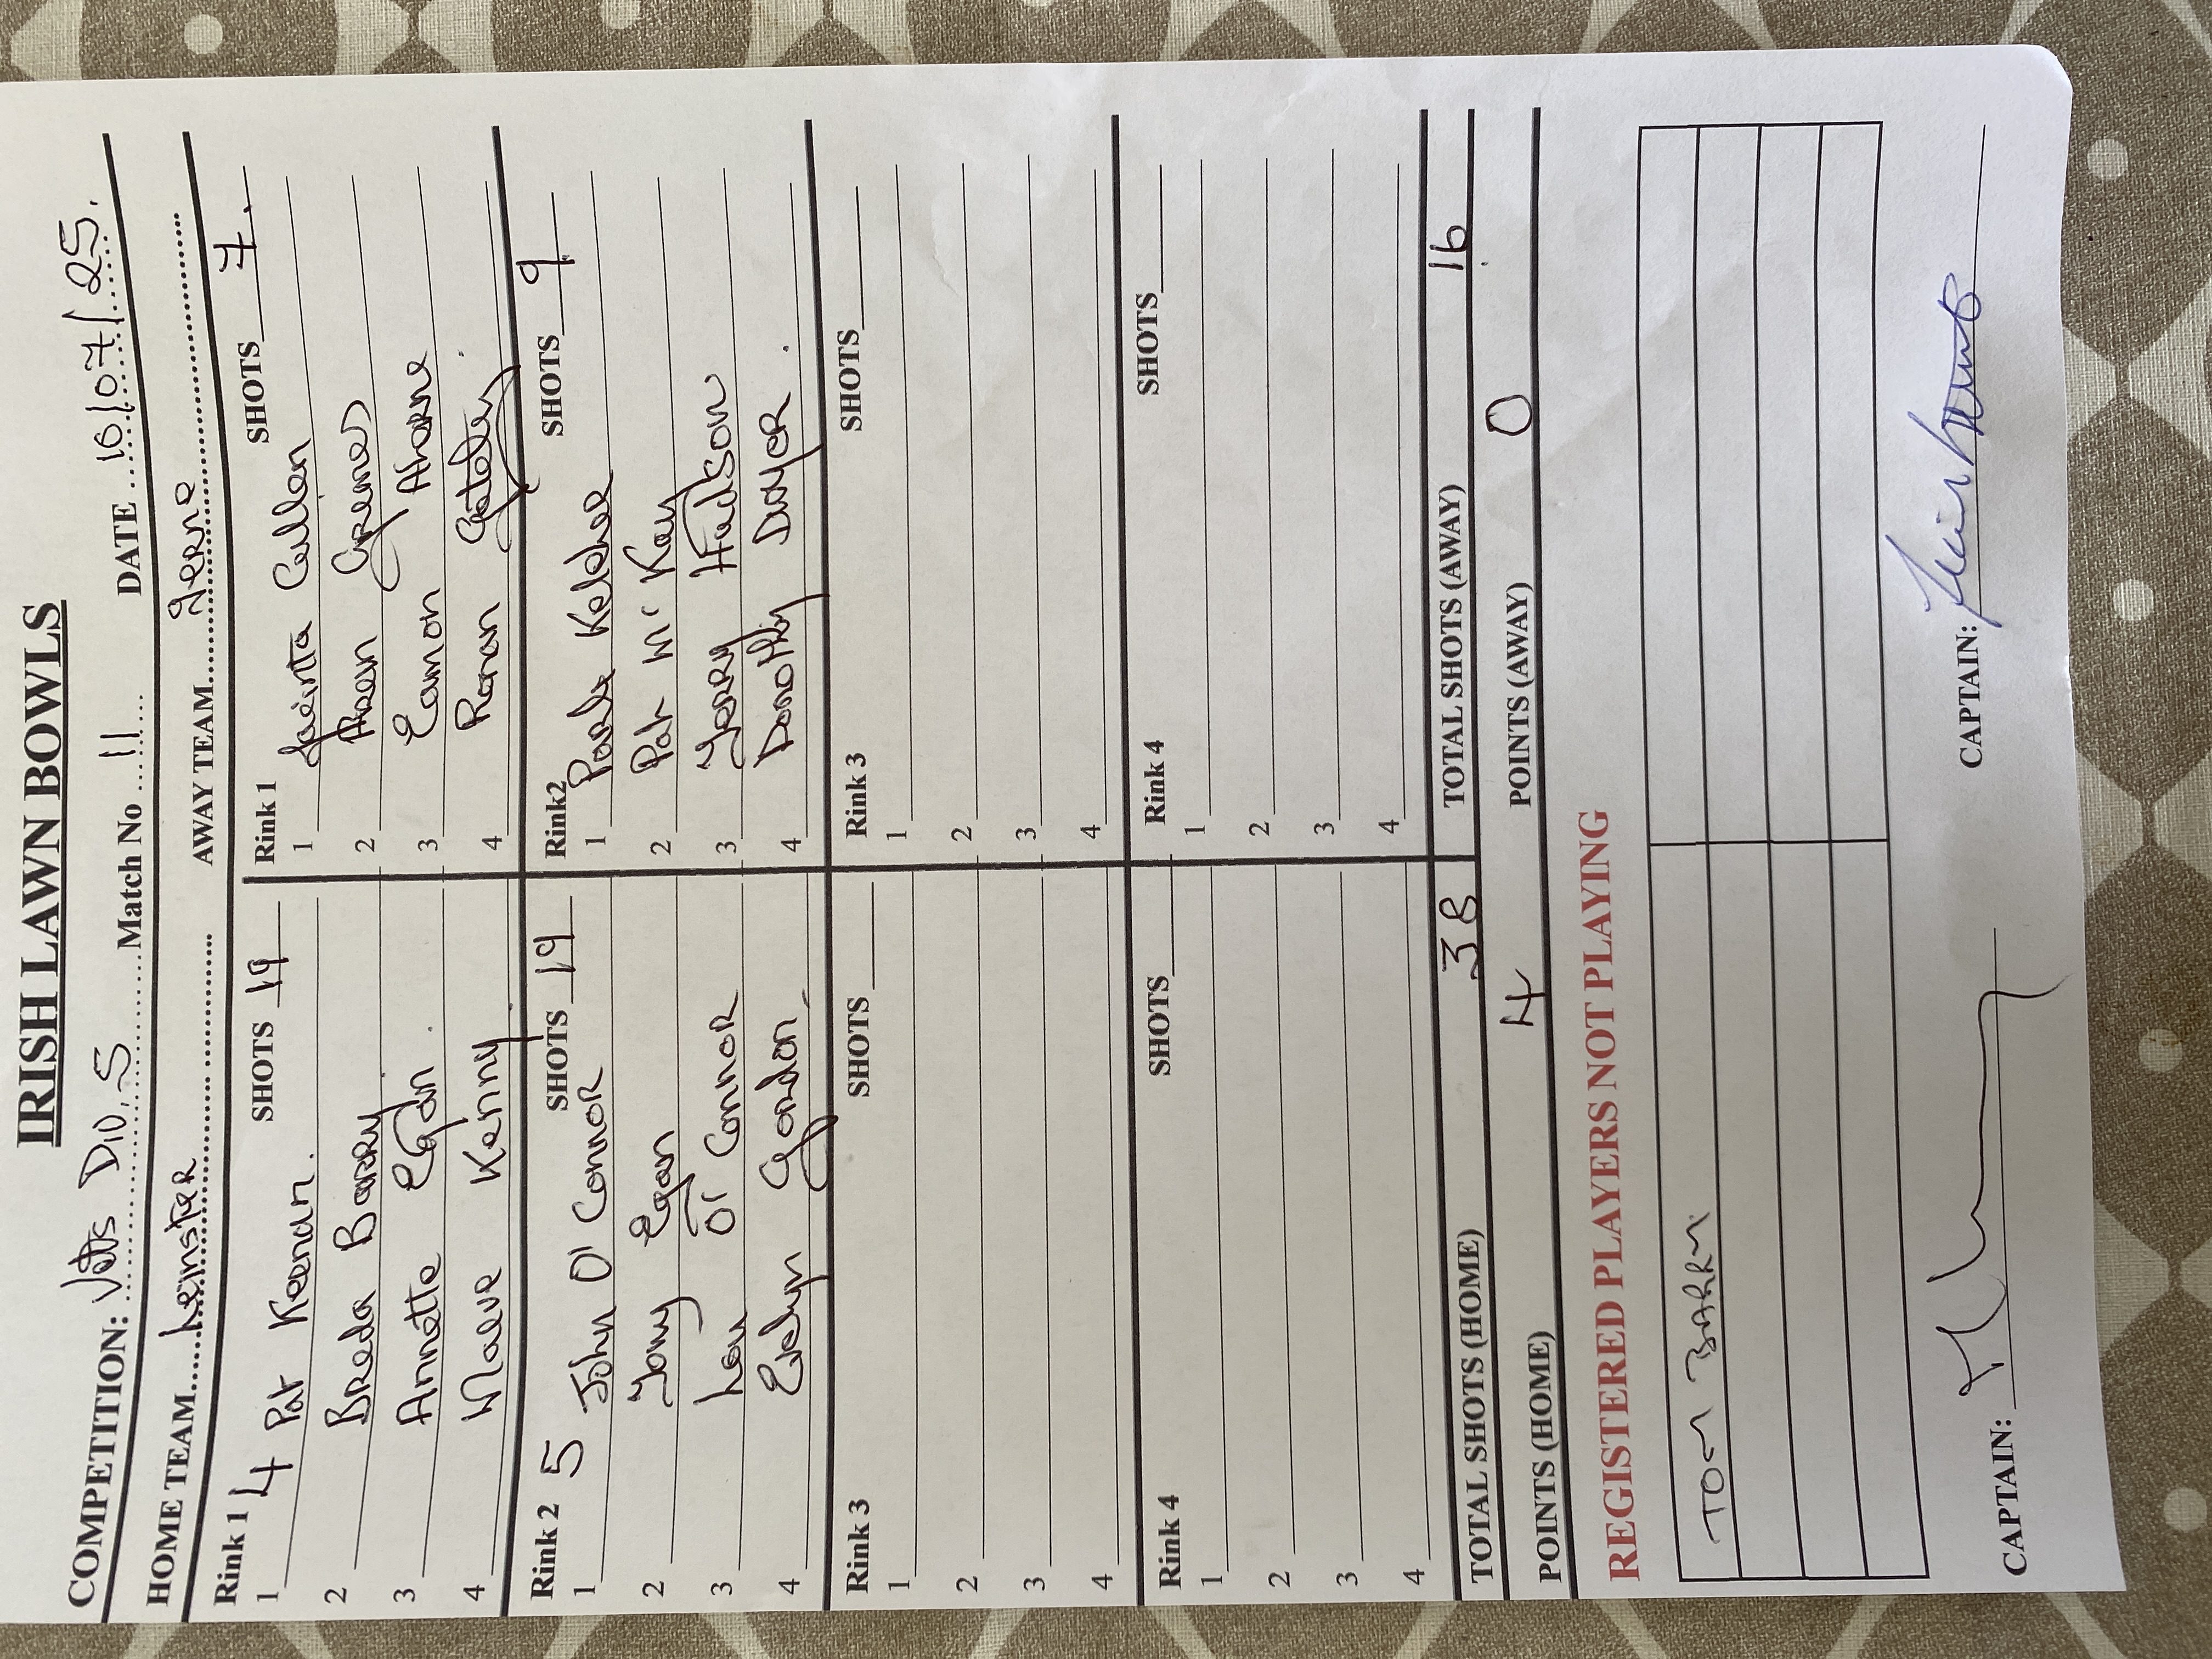 IRISH LAWN BOWLS
COMPETITION: Vets Div. 5 Match No 11 DATE 16/07/25.
HOME TEAM Leinster AWAY TEAM Ierne
Rink 1 4 SHOTS 19
1 Pat Keenan.
2 Breda Barry
3 Annette Egan.
4 Maeve Kenny
Rink 1 SHOTS 7.
1 Jacinta Cullen
2 Greene
3 Eamon Aherne
4 Ronan
Rink 2 5 SHOTS 19
1 John O'Connor
2 Tony Egan
3 Lou O'Connor
4 Evelyn Gordon
Rink2 SHOTS 9
1 Keleher
2 Pat Mc Kay
3 Gerry Hudson
4 Dorothy Dwyer.
Rink 3 SHOTS
1
2
3
4
Rink 3 SHOTS
1
2
3
4
Rink 4 SHOTS
1
2
3
4
Rink 4 SHOTS
1
2
3
4
TOTAL SHOTS (HOME) 38 TOTAL SHOTS (AWAY) 16
POINTS (HOME) 4 POINTS (AWAY) 0
REGISTERED PLAYERS NOT PLAYING
TOM BARRY
CAPTAIN: CAPTAIN: